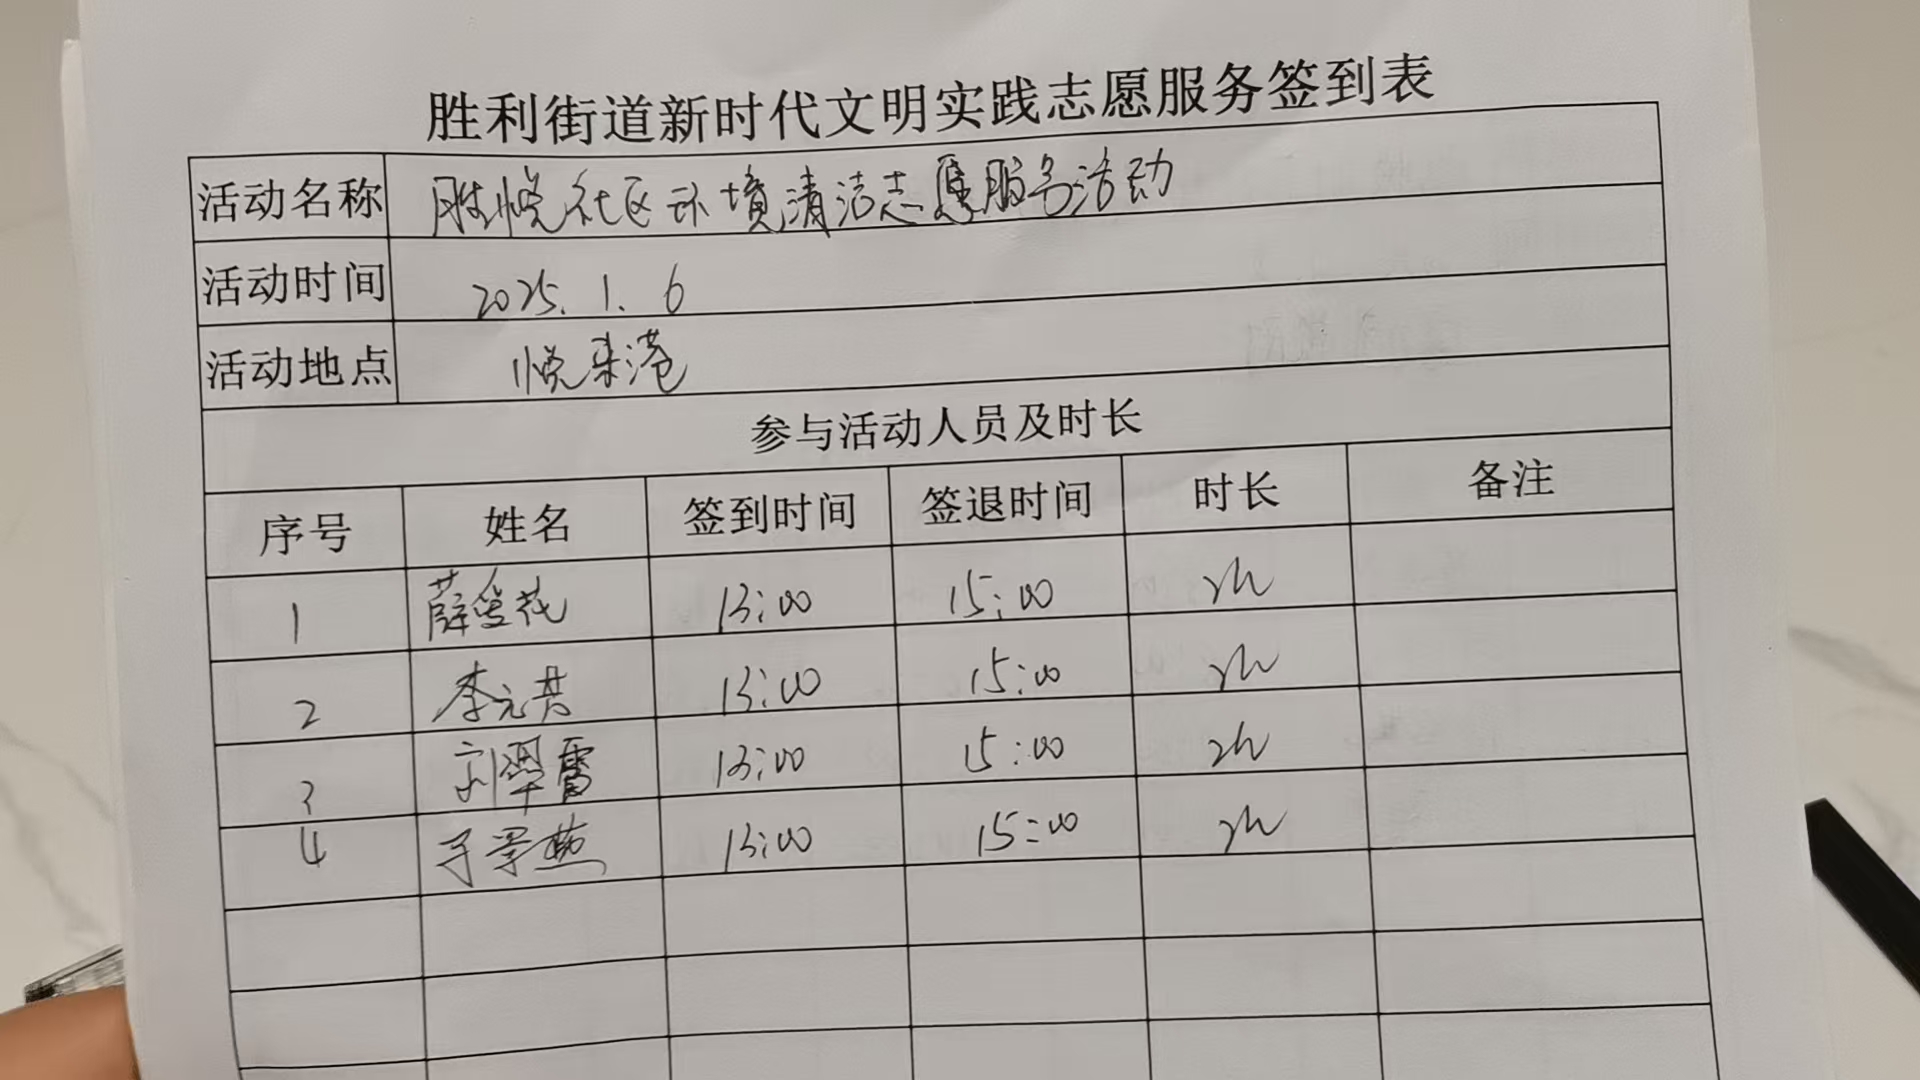 胜利街道新时代文明实践志愿服务签到表
活动名称 胜悦社区环境清洁志愿服务活动
活动时间 2025.1.6
活动地点 悦来港
参与活动人员及时长
序号 姓名 签到时间 签退时间 时长 备注
1 薛雪花 13:00 15:00 2h
2 李元芹 13:00 15:00 2h
3 刘翠雷 13:00 15:00 2h
4 于学燕 13:00 15:00 2h